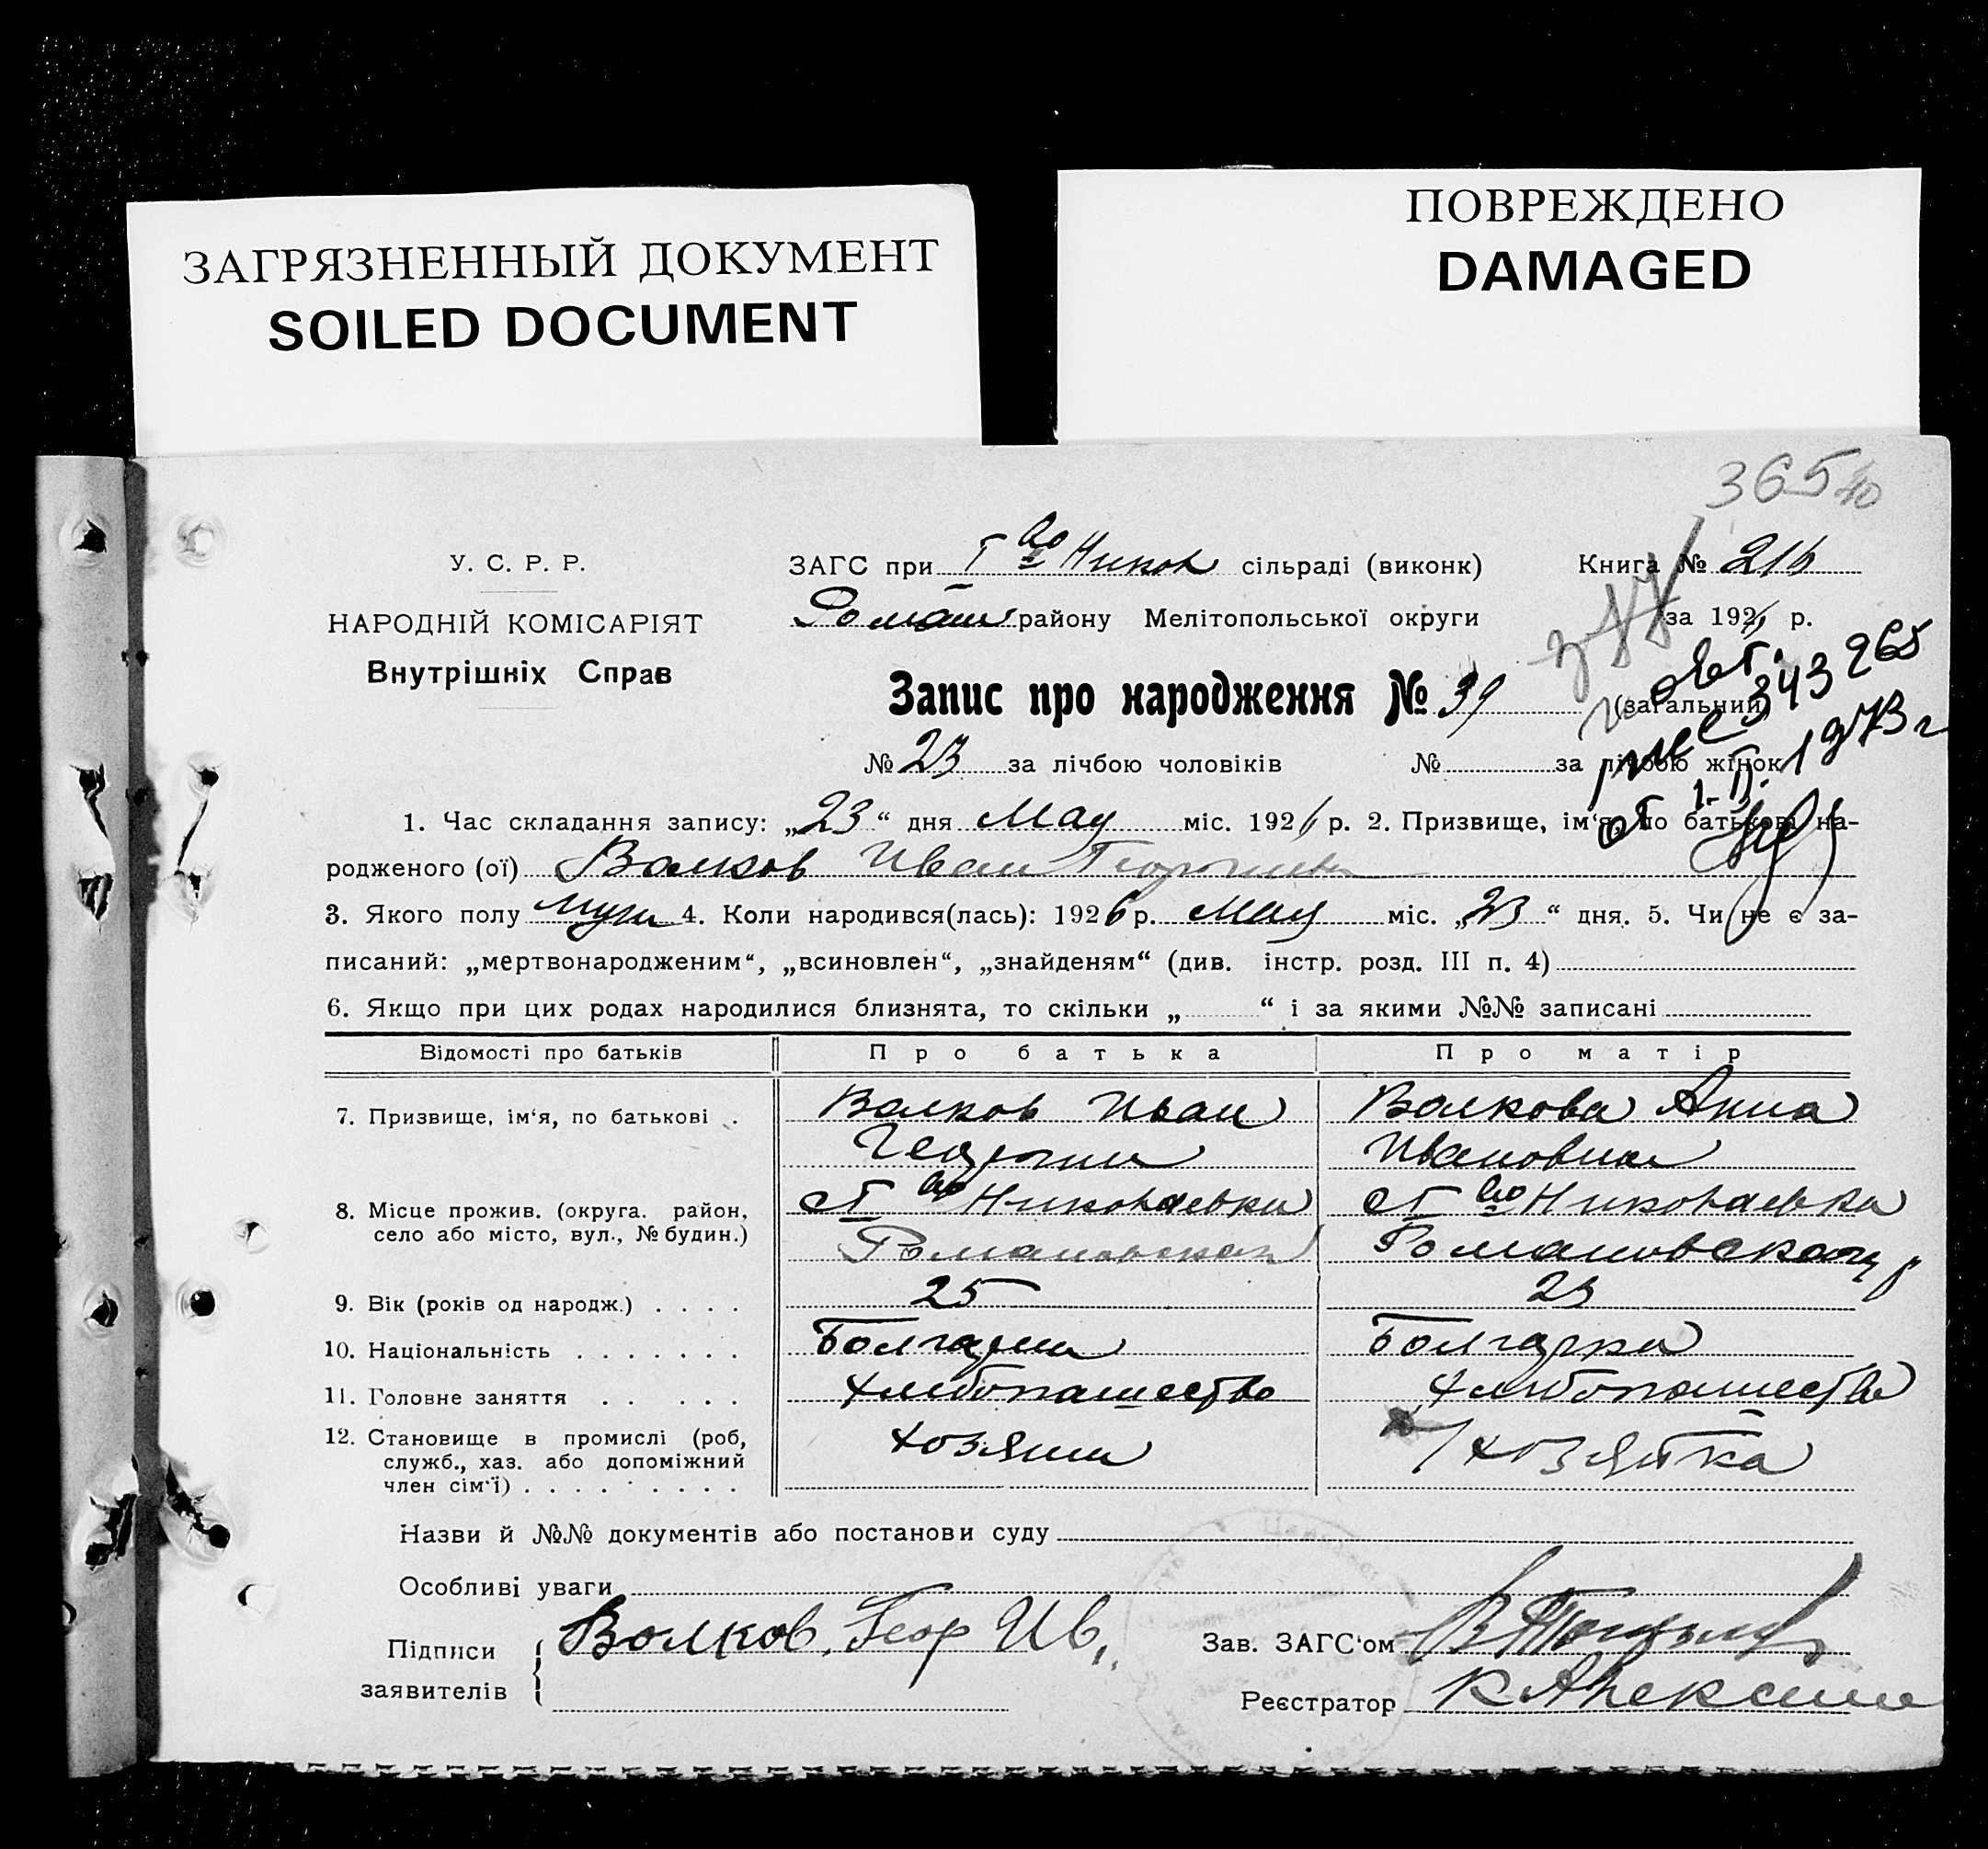 ЗАГРЯЗНЕННЫЙ ДОКУМЕНТ
SOILED DOCUMENT
ПОВРЕЖДЕНО
DAMAGED
365
У. С. Р. Р.
НАРОДНІЙ КОМІСАРІЯТ
Внутрішніх Справ
ЗАГС при Т во Никол сільраді (виконк)
Роман району Мелітопольської округи
Книга № 216
за 1926 р.
Запис про народження № 39 (загальний)
№ 23 за лічбою чоловіків № за лічбою жінок
343265
1973 г
1. Час складання запису: „23“ дня Мая міс. 1926 р. 2. Призвище, ім‘я, по батькові на-
родженого (ої) Волков Иван Георгиев
3. Якого полу муж 4. Коли народився(лась): 1926 р. мая міс. „23“ дня. 5. Чи не є за-
писаний: „мертвонародженим“, „всиновлен“, „знайденям“ (див. інстр. розд. III п. 4)
6. Якщо при цих родах народилися близнята, то скільки „ “ і за якими №№ записані
Відомості про батьків Про батька Про матір
7. Призвище, ім‘я, по батькові . Волков Иван Волкова Анна
Георгии Ивановна
8. Місце прожив. (округа. район, Т во Николаевки Т во Николаевка
село або місто, вул., № будин.) Романовская Романовскаго р
9. Вік (років од народж.) . . . . 25 23
10. Національність . . . . . . . Болгарин Болгарка
11. Головне заняття . . . . . Хлибопашество Хлибопашество
12. Становище в промислі (роб, хозяин хозяйка
служб., хаз. або допоміжний
член сім‘ї) . . . . . . . . .
Назви й №№ документів або постанови суду
Особливі уваги
Підписи Волков, Геор Ив. Зав. ЗАГС‘ом
заявителів Реєстратор К Алексин